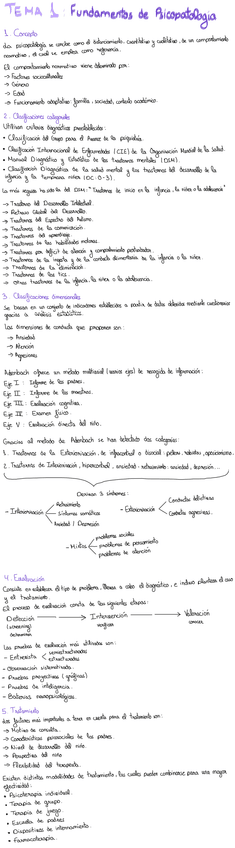 TEMA 1: Fundamentos de Psicopatología
1. Concepto
La psicopatología se concibe como el distanciamiento, cuantitativo y cualitativo, de un comportamiento
normativo, el cual se emplea como referencia.
El comportamiento normativo viene determinado por:
→ Factores socioculturales
→ Género
→ Edad
→ Funcionamiento adaptativo: familia, sociedad, contexto académico.
2. Clasificaciones categoriales
Utilizan criterios diagnósticos preestablecidos:
• Clasificación del Grupo para el Avance de la psiquiatría.
• Clasificación Internacional de Enfermedades (CIE) de la Organización Mundial de la Salud.
• Manual Diagnóstico y Estadístico de los trastornos mentales (DSM).
• Clasificación Diagnóstica de la salud mental y los trastornos del desarrollo de la
infancia y la temprana niñez (DC: 0-3).
La más seguida ha sido la del DSM: "Trastornos de inicio en la infancia, la niñez o la adolescencia"
→ Trastorno del Desarrollo Intelectual.
→ Retraso Global del Desarrollo.
→ Trastornos del Espectro del Autismo.
→ Trastornos de la comunicación.
→ Trastornos del aprendizaje.
→ Trastornos de las habilidades motoras.
→ Trastornos por déficit de atención y comportamiento perturbador.
→ Trastornos de la ingesta y de la conducta alimentaria de la infancia o la niñez.
→ Trastornos de la eliminación.
→ Trastornos de los tics.
→ Otros trastornos de la infancia, la niñez o la adolescencia.
3. Clasificaciones dimensionales
Se basan en un conjunto de indicadores establecidos a partir de datos obtenidos mediante cuestionarios
gracias a análisis estadísticos.
Las dimensiones de conducta que proponen son:
→ Ansiedad
→ Atención
→ Agresiones
Achenbach ofrece un método multiaxial (varios ejes) de recogida de información:
Eje I : Informe de los padres.
Eje II : Informe de los maestros.
Eje III : Evaluación cognitiva.
Eje IV : Examen físico.
Eje V : Evaluación directa del niño.
Gracias al método de Achenbach se han detectado dos categorías:
1. Trastornos de la Exteriorización, de infracontrol o disocial: pelean, rebeldía, oposicionismo.
2. Trastornos de Interiorización, hipercontrol, ansiedad: retraimiento, ansiedad, depresión...
Derivan 3 síntomas:
- Interiorización
Retraimiento
Síntomas somáticos
Ansiedad / Depresión
- Exteriorización
Conductas delictivas
Conductas agresivas.
- Mixtos
problemas sociales
problemas de pensamiento
problemas de atención
4. Evaluación
Consiste en establecer el tipo de problema, llevar a cabo el diagnóstico, e incluso plantear el caso
y el tratamiento.
El proceso de evaluación consta de las siguientes etapas:
Detección → Intervención → Valoración
(screening)
Las pruebas de evaluación más utilizadas son:
- Entrevista
semiestructurada
estructurada
- Observación sistematizada.
- Pruebas proyectivas (gráficas)
- Pruebas de inteligencia.
- Baterías neuropsicológicas.
5. Tratamiento
Los factores más importantes a tener en cuenta para el tratamiento son:
→ Motivo de consulta.
→ Características psicosociales de los padres.
→ Nivel de desarrollo del niño.
→ Perspectiva del niño
→ Flexibilidad del terapeuta.
Existen distintas modalidades de tratamiento, las cuales pueden combinarse para una mayor
efectividad:
• Psicoterapia individual.
• Terapia de grupo
• Terapia de juego
• Escuela de padres
• Dispositivos de internamiento.
• Farmacoterapia.